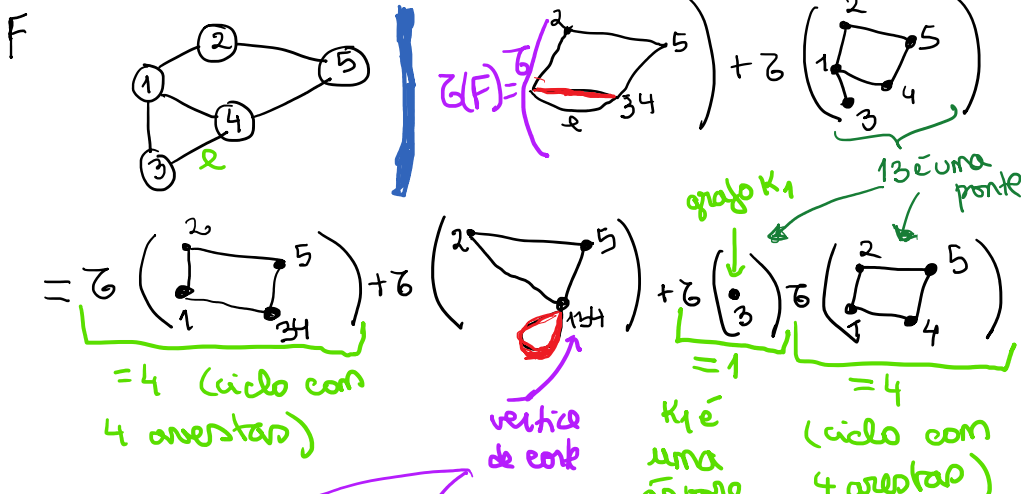 F
1 2 5 4 3
e
τ(F) = τ ( 2 5 34 e ) + τ ( 2 5 1 4 3 )
13 é uma
ponte
grafo K1
= τ ( 2 5 1 34 ) + τ ( 2 5 134 ) + τ ( 3 ) τ ( 2 5 1 4 )
= 4 (ciclo com
4 arestas)
vertice
de corte
= 1
K1 é
uma
= 4
(ciclo com
4 arestas)